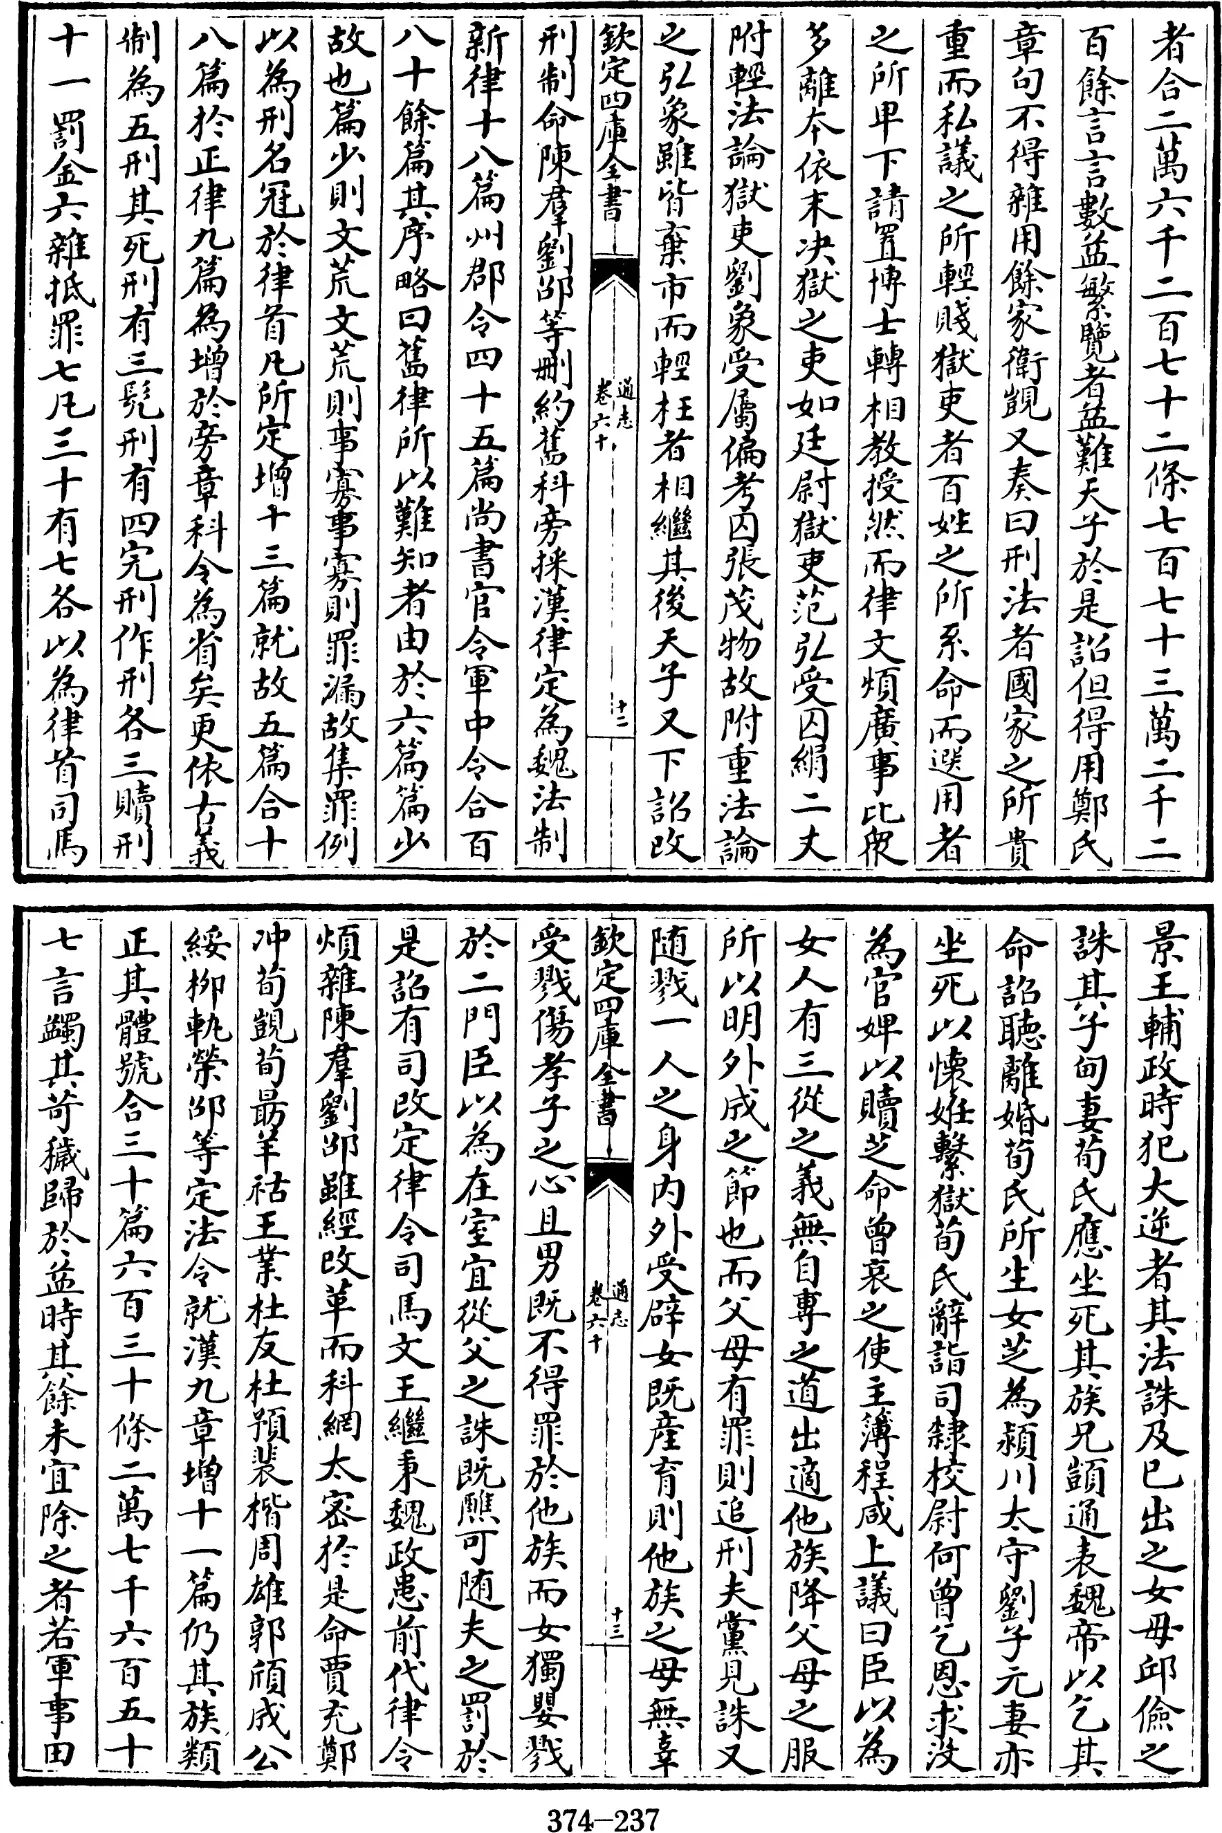 者合二萬六千二百七十二條七百七十三萬二千二
百餘言言數益繁覽者益難天子於是詔但得用鄭氏
章句不得雜用餘家衛覬又奏曰刑法者國家之所貴
重而私議之所輕賤獄吏者百姓之所系命而選用者
之所卑下請置博士轉相教授然而律文煩廣事比衆
多離本依末决獄之吏如廷尉獄吏范弘受囚絹二丈
附輕法論獄吏劉象受屬偏考囚張茂物故附重法論
之弘象雖皆棄市而輕枉者相繼其後天子又下詔改
欽定四庫全書
通志
卷六十
十二
刑制命陳羣劉邵等刪約舊科旁採漢律定為魏法制
新律十八篇州郡令四十五篇尚書官令軍中令合百
八十餘篇其序略曰舊律所以難知者由於六篇篇少
故也篇少則文荒文荒則事寡事寡則罪漏故集罪例
以為刑名冠於律首凡所定增十三篇就故五篇合十
八篇於正律九篇為增於旁章科令為省矣更依古義
制為五刑其死刑有三髡刑有四完刑作刑各三贖刑
十一罰金六雜抵罪七凡三十有七各以為律首司馬
景王輔政時犯大逆者其法誅及已出之女毋邱儉之
誅其子甸妻荀氏應坐死其族兄顗通表魏帝以乞其
命詔聽離婚荀氏所生女芝為潁川太守劉子元妻亦
坐死以懷姙繫獄荀氏辭詣司隸校尉何曾乞恩求没
為官婢以贖芝命曾哀之使主簿程咸上議曰臣以為
女人有三從之義無自專之道出適他族降父母之服
所以明外成之節也而父母有罪則追刑夫黨見誅又
随戮一人之身内外受辟女既產育則他族之母無辜
欽定四庫全書
通志
卷六十
十三
受戮傷孝子之心且男既不得罪於他族而女獨嬰戮
於二門臣以為在室宜從父之誅既醮可随夫之罰於
是詔有司改定律令司馬文王繼秉魏政患前代律令
煩雜陳羣劉邵雖經改革而科網太密於是命賈充鄭
冲荀覬荀勗羊祜王業杜友杜預裴楷周雄郭頎成公
綏柳軌榮邵等定法令就漢九章增十一篇仍其族類
正其體號合三十篇六百三十條二萬七千六百五十
七言蠲其苛穢歸於益時其餘未宜除之者若軍事田
374-237